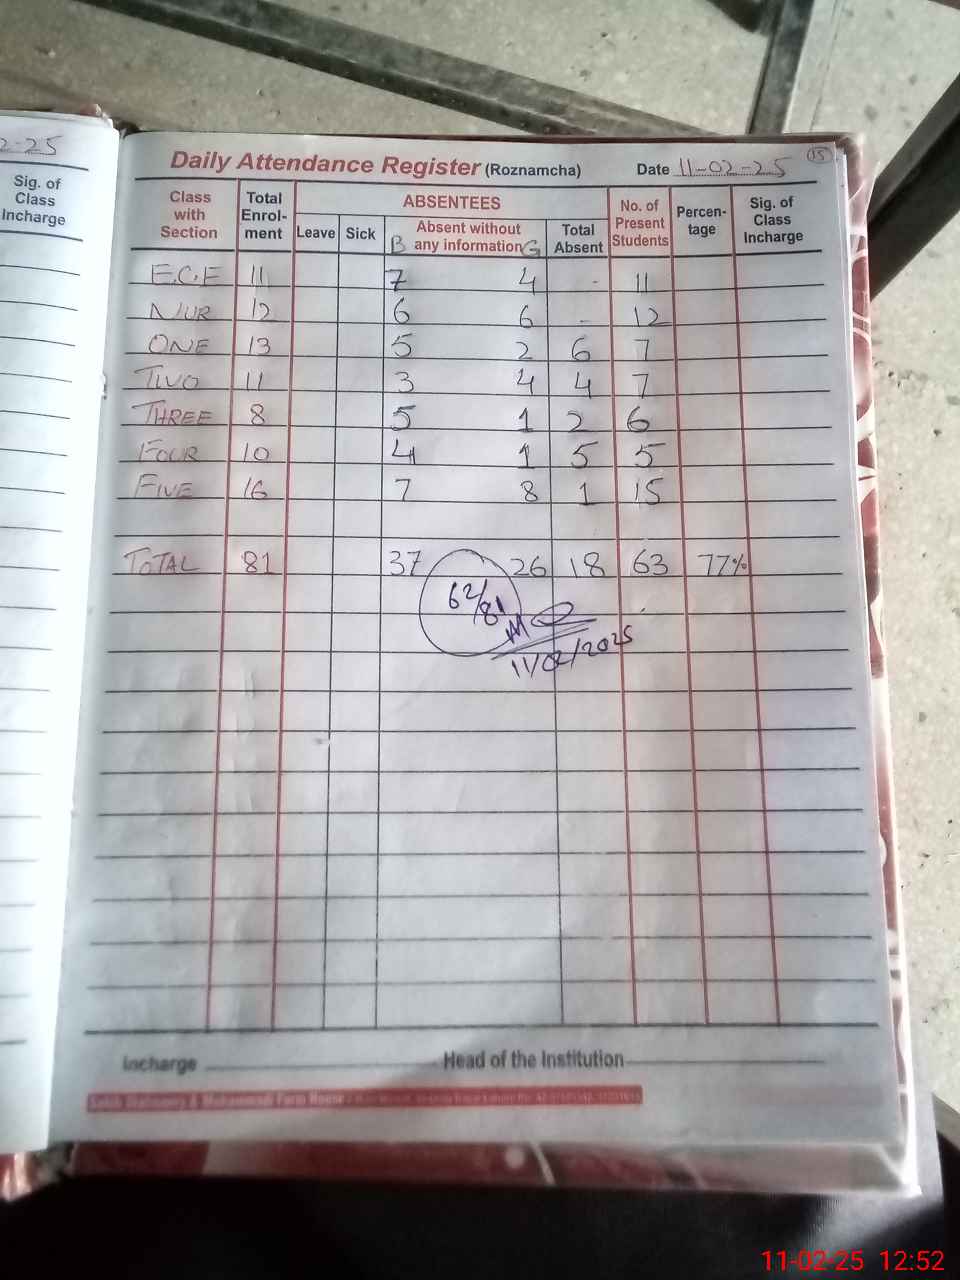 2-25
Sig. of
Class
Incharge
15
Daily Attendance Register (Roznamcha) Date 11-02-25
Class with Section Total Enrol-ment ABSENTEES No. of Present Students Percen-tage Sig. of Class Incharge
Leave Sick B Absent without any information G Total Absent
E.C.E 11 7 4 - 11
NUR 12 6 6 - 12
ONE 13 5 2 6 7
TWO 11 3 4 4 7
THREE 8 5 1 2 6
FOUR 10 4 1 5 5
FIVE 16 7 8 1 15
TOTAL 81 37 26 18 63 77%
62/81
11/02/2025
Incharge Head of the Institution
11-02-25 12:52